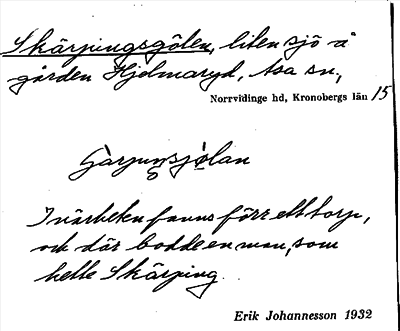 Skärpingsgölen, liten sjö å
gården Hjelmaryd, Asa sn,
Norrvidinge hd, Kronobergs län 15
I närheten fanns förr ett torp,
och där bodde en man, som
hette Skärping.
Erik Johannesson 1932